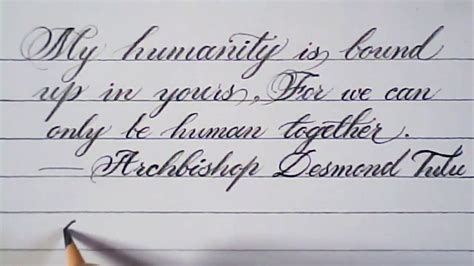 My humanity is bound
up in yours, For we can
only be human together.
— Archbishop Desmond Tutu